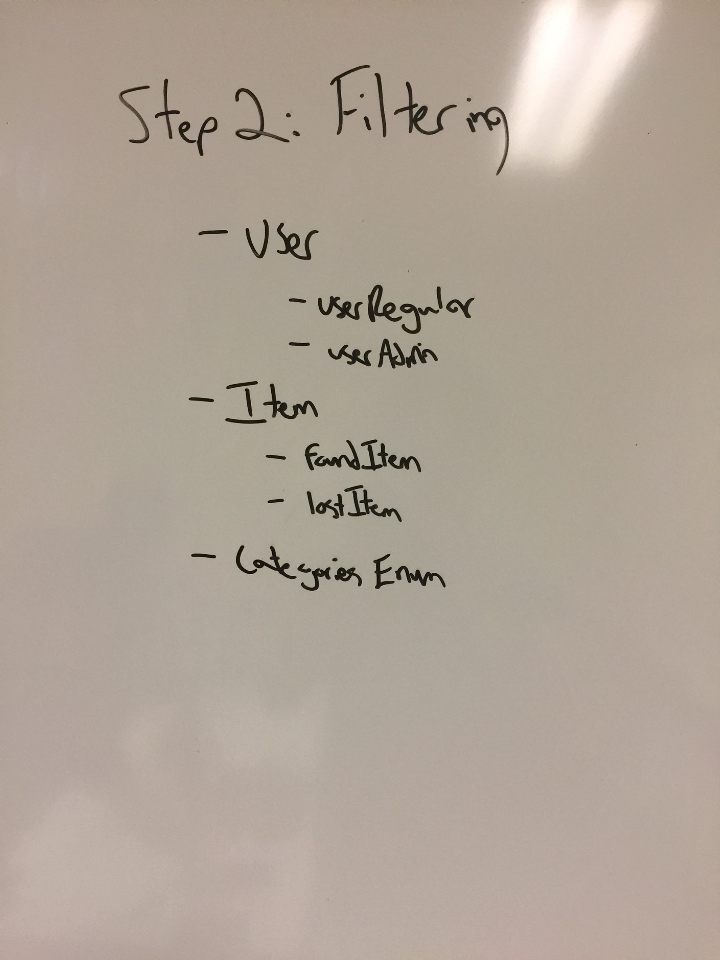 Step 2: Filtering
- User
- userRegular
- userAdmin
- Item
- foundItem
- lostItem
- Categories Enum